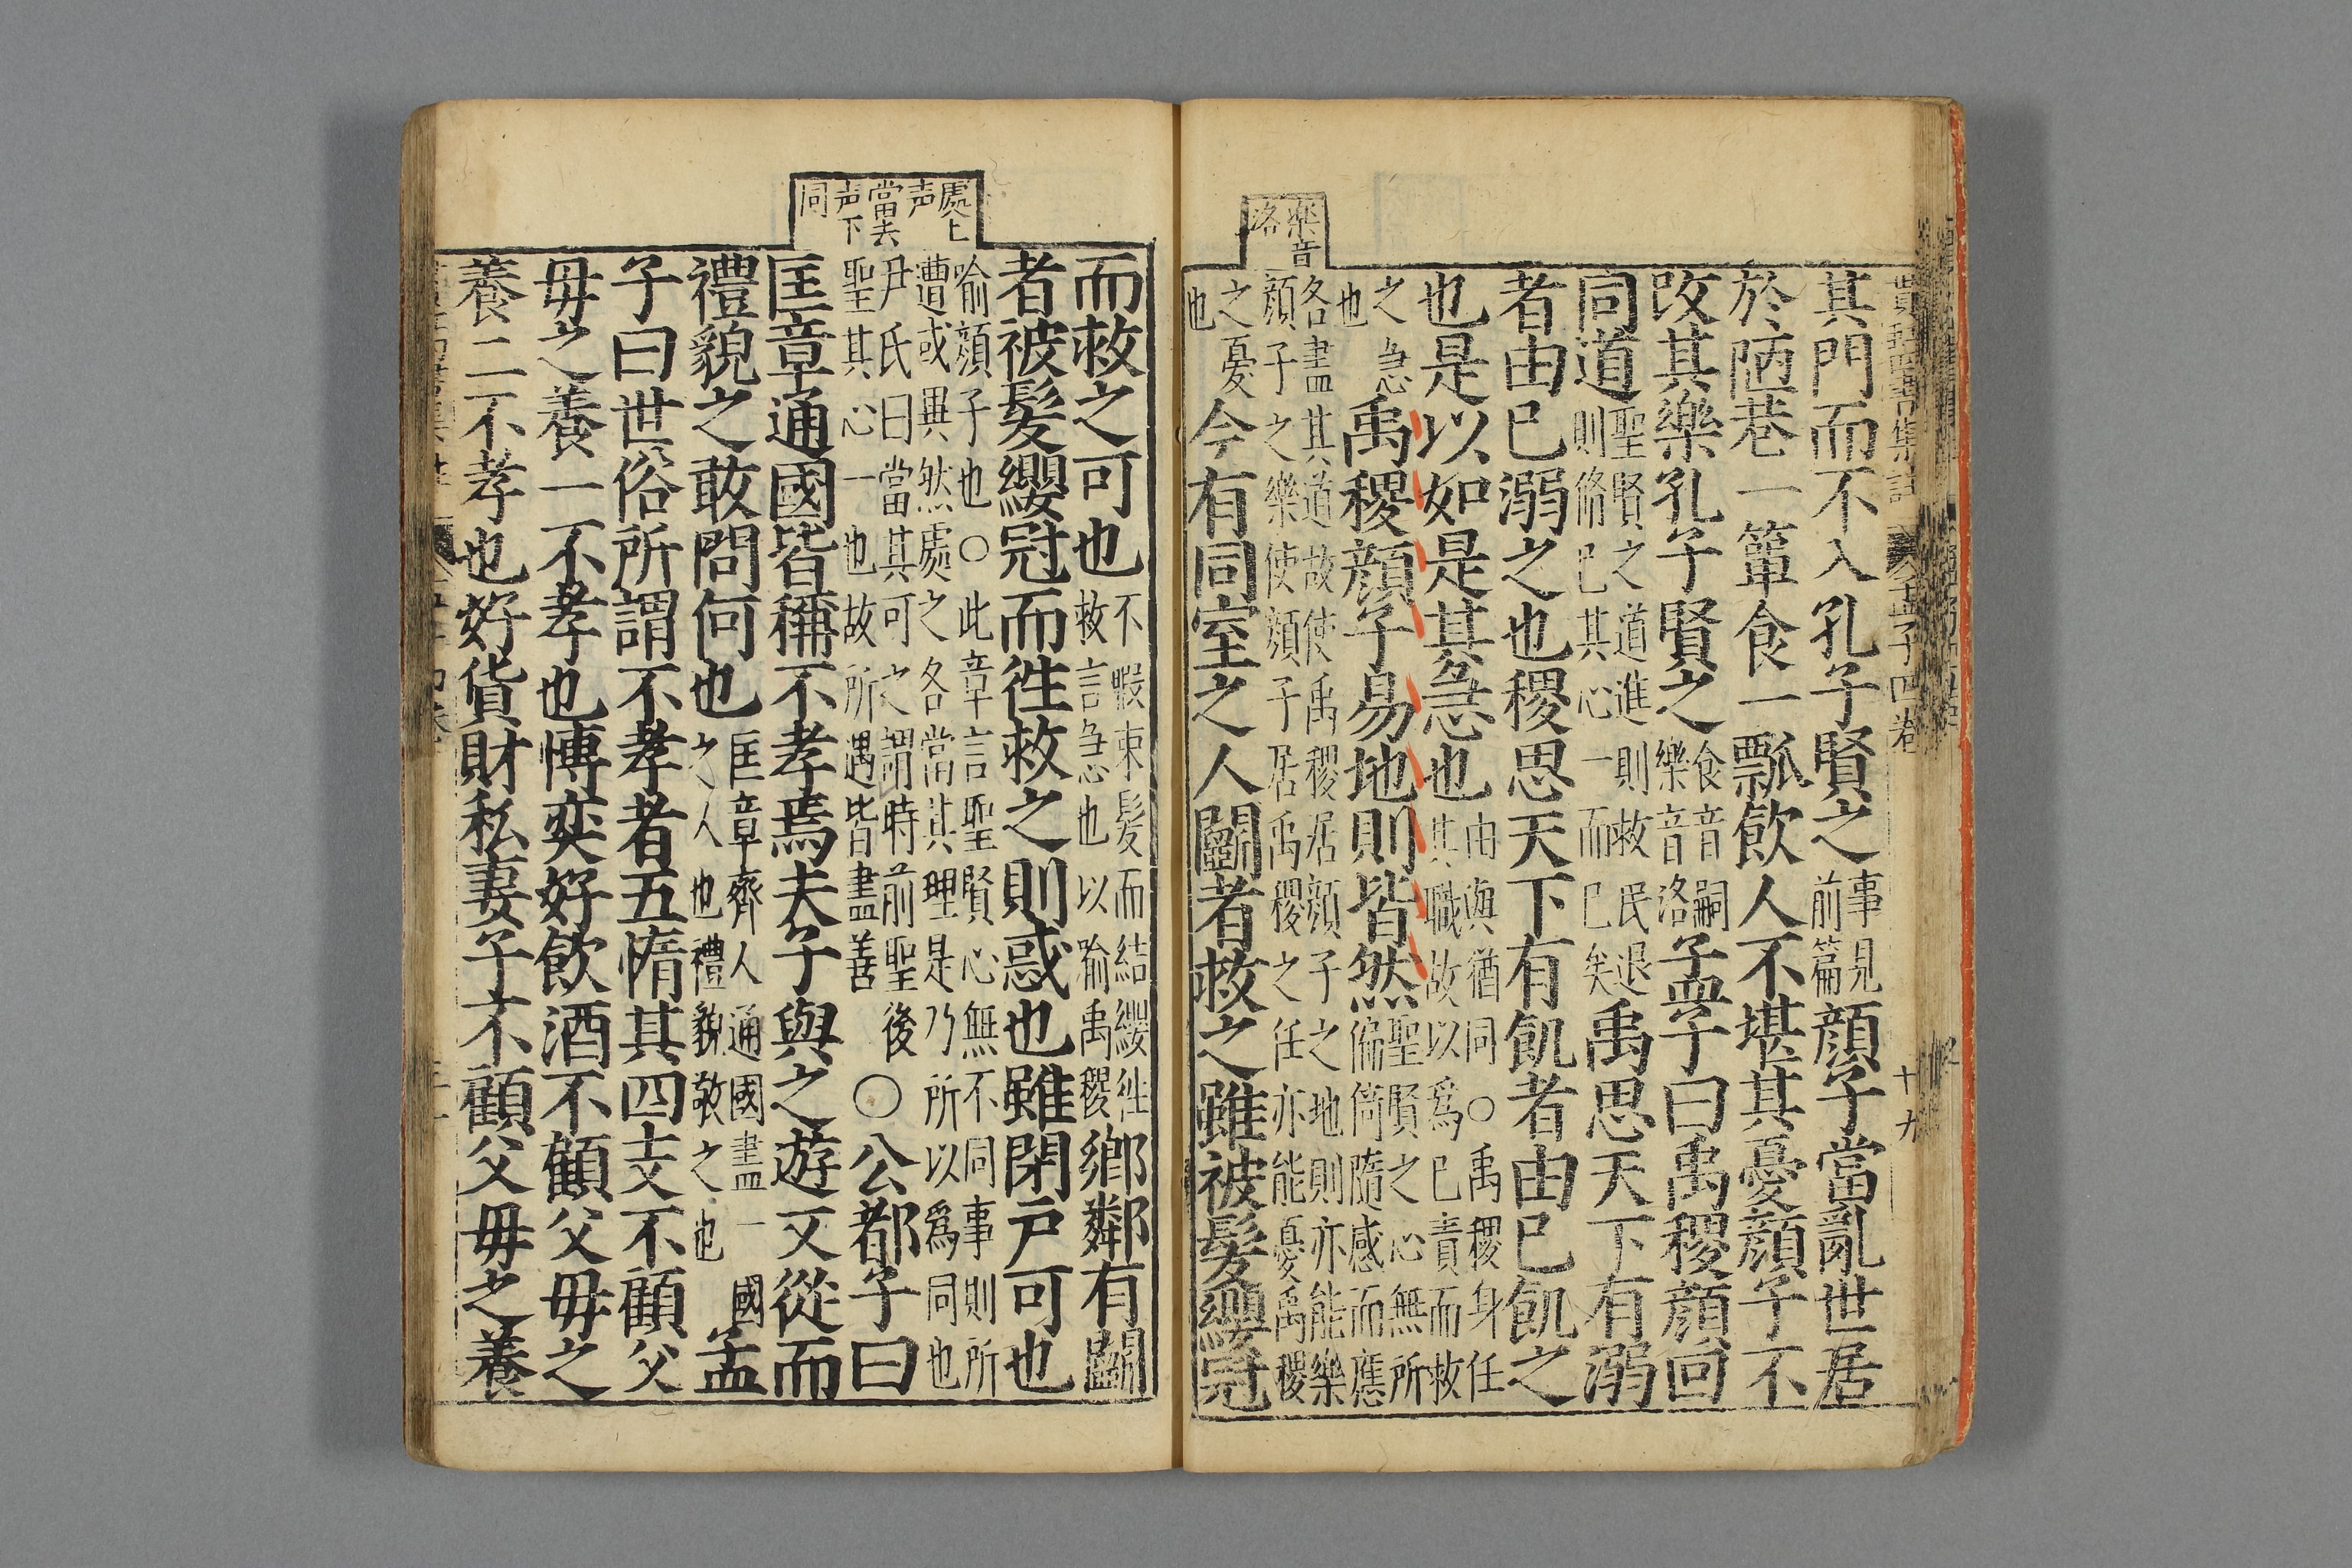 其門而不入孔子賢之事見前篇顔子當亂世居
於陋巷一簞食一瓢飲人不堪其憂顔子不
改其樂孔子賢之食音嗣樂音洛孟子曰禹稷顔回
同道聖賢之道進則救民退則脩己其心一而已矣禹思天下有溺
者由已溺之也稷思天下有飢者由已飢之
也是以如是其急也由與猶同○禹稷身任其職故以爲已責而救
之急也禹稷顔子易地則皆然聖賢之心無所偏倚隨感而應
各盡其道故使禹稷居顔子之地則亦能樂
顔子之樂使顔子居禹稷之任亦能憂禹稷
之憂也今有同室之人鬭者救之雖被髮纓冠
樂音洛
而救之可也不暇束髮而結纓徃救言急也以喻禹稷鄉鄰有鬭
者被髮纓冠而徃救之則惑也雖閉戸可也
喻顔子也○此章言聖賢心無不同事則所
遭或異然處之各當其理是乃所以爲同也
尹氏曰當其可之謂時前聖後
聖其心一也故所遇皆盡善○公都子曰
匡章通國皆稱不孝焉夫子與之遊又從而
禮貌之敢問何也匡章齊人通國盡一國之人也禮貌敬之也孟
子曰世俗所謂不孝者五惰其四支不顧父
毋之養一不孝也博奕好飲酒不顧父毋之
養二不孝也好貨財私妻子不顧父毋之養
處上声當去声下同
孟子四卷
十九